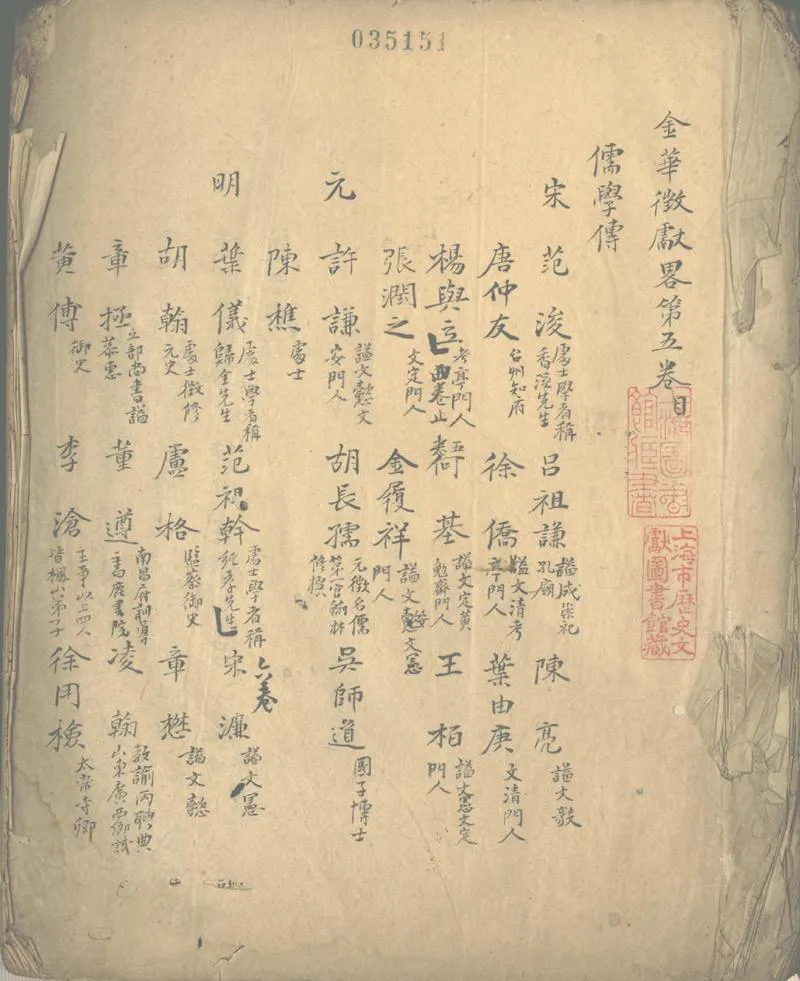 035151
金華徵獻畧第五卷目
儒學傳
宋 范浚 處士學者稱香溪先生 呂祖謙 謚成崇祀孔廟 陳亮 謚文毅
唐仲友 台州知府 徐僑 謚文清考亭門人 葉由庚 文清門人
楊與立 考亭門人 四卷止 五 何基 謚文定黃勉齋門人 王柏 謚文憲文定門人
張潤之 文定門人 金履祥 謚文安文憲門人
元 許謙 謚文懿文安門人 胡長孺 元徵名儒第一官翰林修撰 吳師道 國子博士
陳樵 處士
明 葉儀 處士學者稱歸全先生 范祖幹 處士學者稱純孝先生 六卷 宋濂 謚文憲
胡翰 處士徵修元史 盧格 監察御史 章懋 謚文懿
章拯 工部尚書謚恭惠 董遵 南昌府訓導主書鹿書院 凌瀚 教諭丙聘典山東廣西鄉試
黃傅 御史 李滄 主事以上四人皆楓山弟子 徐用檢 太常寺卿
上海圖書館藏書
上海市歷史文獻圖書館藏